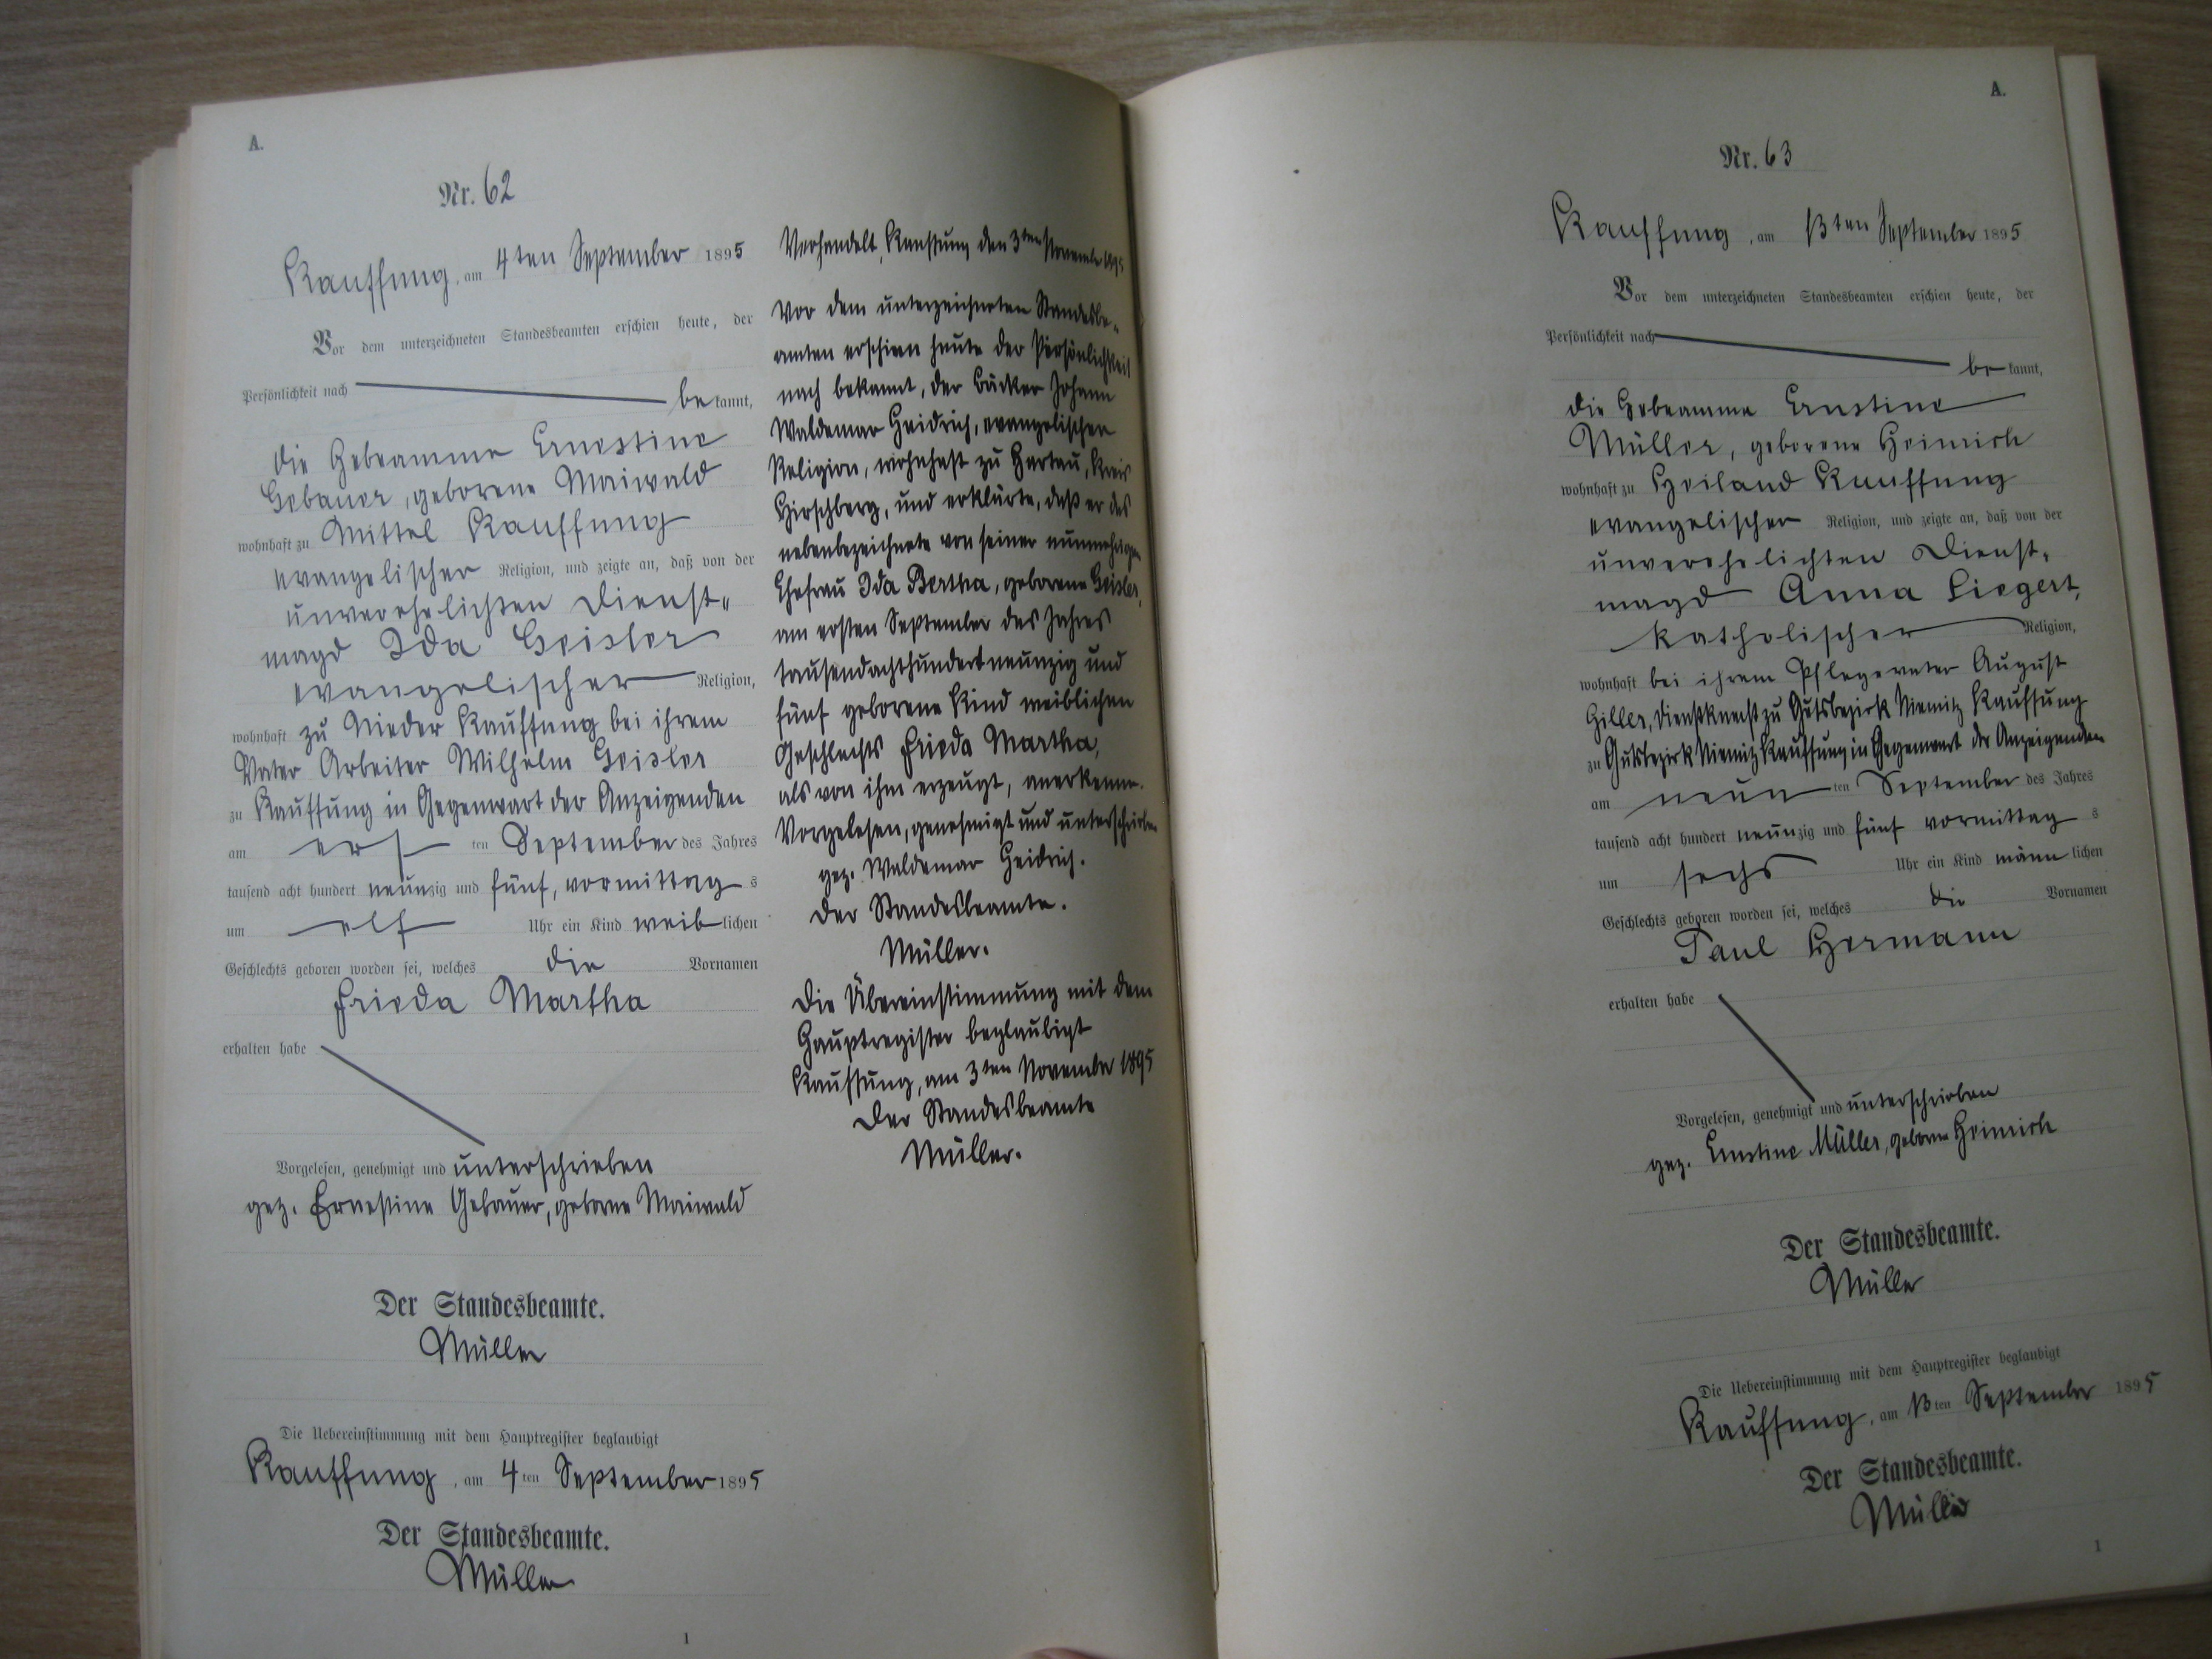 A.
Nr. 62
Kauffung, am 4ten September 1895
Vor dem unterzeichneten Standesbeamten erschien heute, der
Persönlichkeit nach
be kannt,
die Hebeamme Ernestine
Gebauer, geborene Maiwald
wohnhaft zu Mittel Kauffung
evangelischer Religion, und zeigte an, daß von der
unverehelichten Dienst-
magd Ida Geisler
evangelischer Religion,
wohnhaft zu Nieder Kauffung bei ihrem
Vater Arbeiter Wilhelm Geisler
zu Kauffung in Gegenwart der Anzeigenden
am ers ten September des Jahres
tausend acht hundert neunzig und fünf, vormittag s
um elf Uhr ein Kind weiblichen
Geschlechts geboren worden sei, welches die Vornamen
Frieda Martha
erhalten habe
Vorgelesen, genehmigt und unterschrieben
gez. Ernestine Gebauer, geborne Maiwald
Der Standesbeamte.
Müller
Die Uebereinstimmung mit dem Hauptregister beglaubigt
Kauffung, am 4ten September 1895
Der Standesbeamte.
Müller
1
Verhandelt, Kauffung den 3ten November 1895
Vor dem unterzeichneten Standesbe-
amten erschien heute der Persönlichkeit
nach bekannt, der Bäcker Johann
Waldemar Heidrich, evangelischer
Religion, wohnhaft zu Hartau, Kreis
Hirschberg, und erklärte, daß er das
nebenbezeichnete von seiner nunmehrigen
Ehefrau Ida Bertha, geborene Geisler,
am ersten September des Jahres
tausendachthundertneunzig und
fünf geborene Kind weiblichen
Geschlechts Frieda Martha,
als von ihm erzeugt, anerkenne.
Vorgelesen, genehmigt und unterschrieben
gez. Waldemar Heidrich.
Der Standesbeamte.
Müller.
Die Übereinstimmung mit dem
Hauptregister beglaubigt
Kauffung, am 3ten November 1895
Der Standesbeamte
Müller.
A.
Nr. 63
Kauffung, am 13ten September 1895
Vor dem unterzeichneten Standesbeamten erschien heute, der
Persönlichkeit nach
be kannt,
die Hebeamme Ernstine
Müller, geborene Heinrich
wohnhaft zu Heiland Kauffung
evangelischer Religion, und zeigte an, daß von der
unverehelichten Dienst-
magd Anna Siegert,
katholischer Religion,
wohnhaft bei ihrem Pflegevater August
Hiller, Dienstknecht zu Gutsbezirk Niemitz Kauffung
zu Gutsbezirk Niemitz Kauffung in Gegenwart der Anzeigenden
am neun ten September des Jahres
tausend acht hundert neunzig und fünf vormittag s
um sechs Uhr ein Kind männlichen
Geschlechts geboren worden sei, welches die Vornamen
Paul Hermann
erhalten habe
Vorgelesen, genehmigt und unterschrieben
gez. Ernstine Müller, geborne Heinrich
Der Standesbeamte.
Müller
Die Uebereinstimmung mit dem Hauptregister beglaubigt
Kauffung, am 13ten September 1895
Der Standesbeamte.
Müller
1